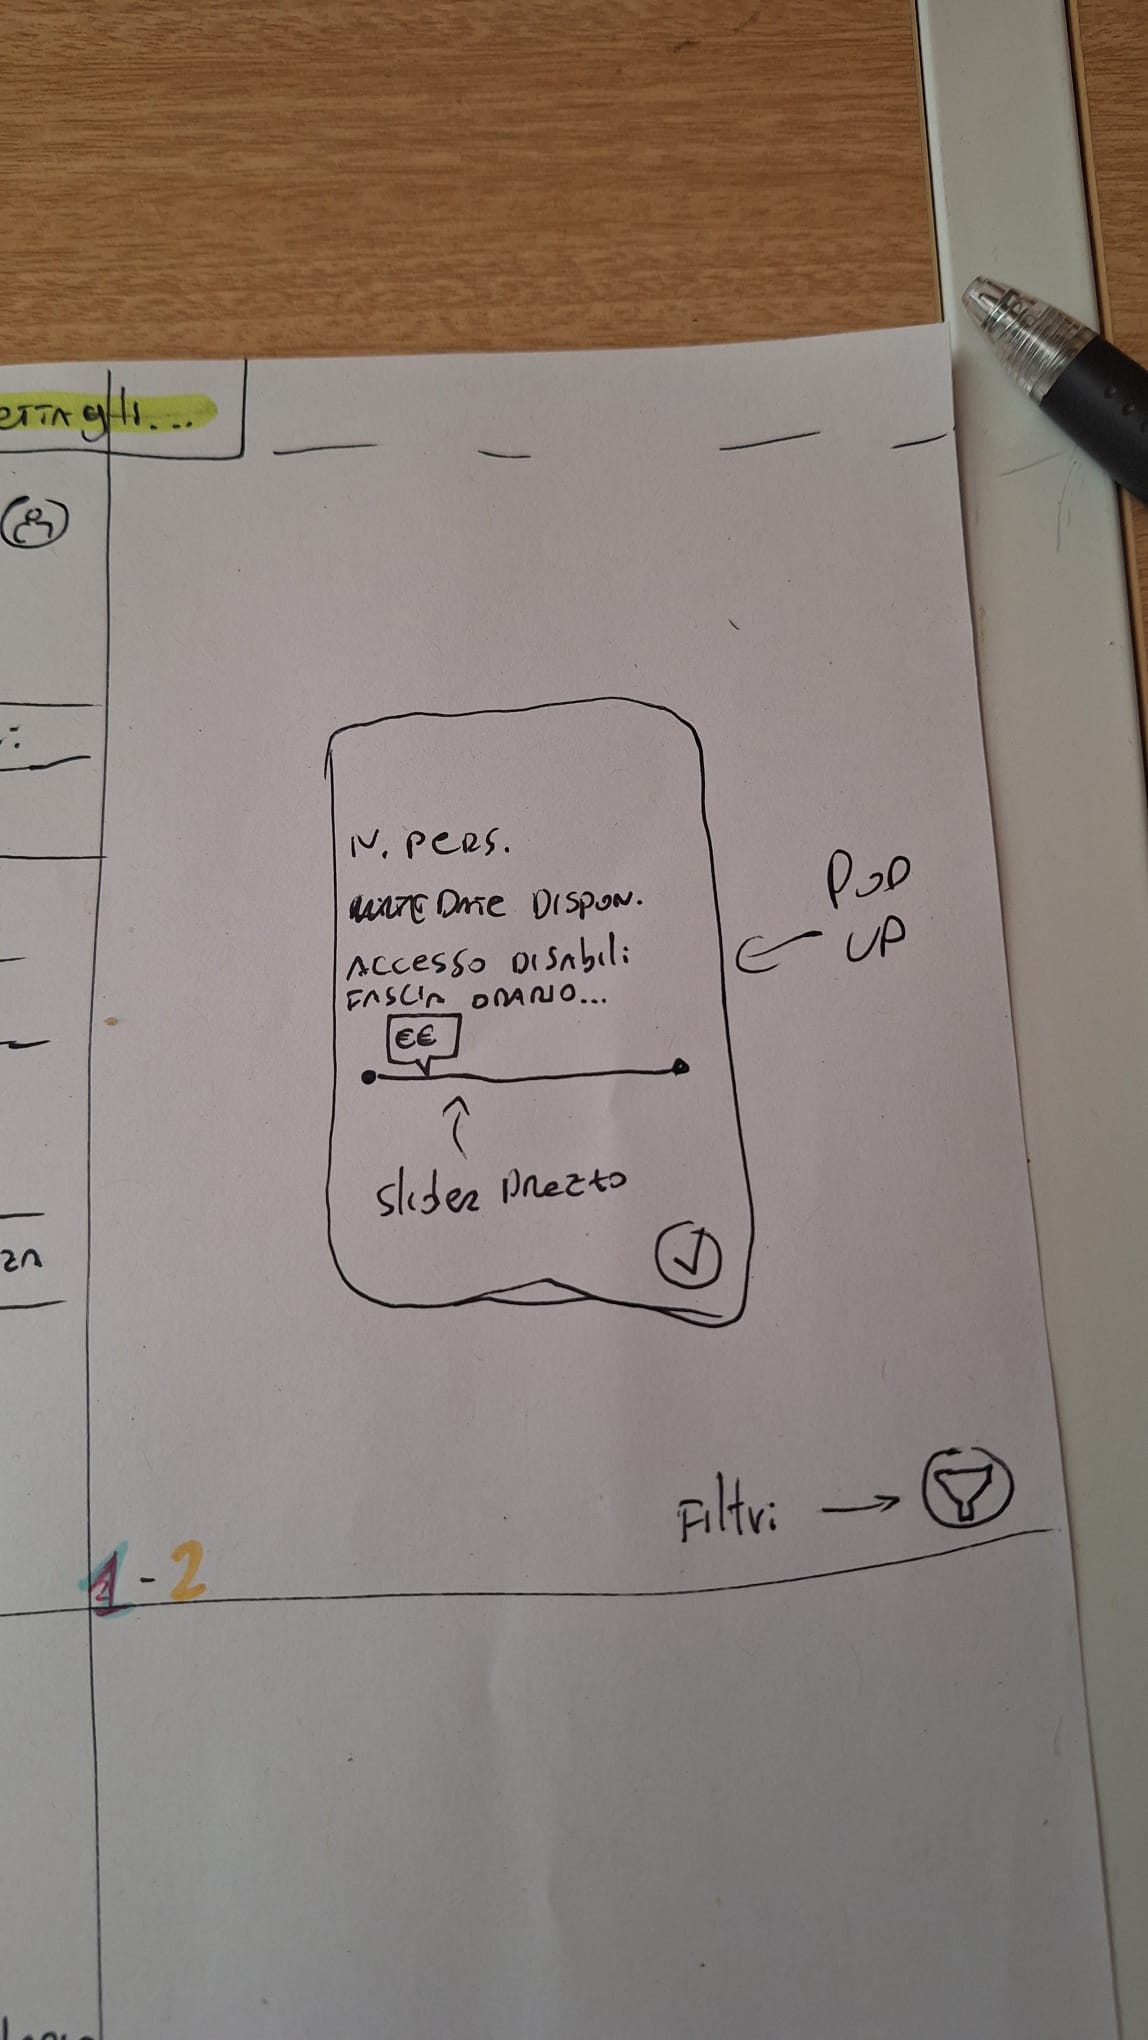 ettagli...
N. PERS.
DATE DISPON.
ACCESSO DISABILI
FASCIA ORARIO...
€€
slider prezzo
POP
UP
Filtri
za
1-2